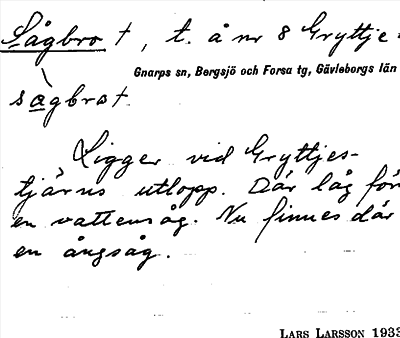 Sågbrot, t. å nr 8 Gryttje=
Gnarps sn, Bergsjö och Forsa tg, Gävleborgs län
sàgbrot
Ligger vid Gryttjes-
tjärns utlopp. Där låg för
en vattensåg. Nu finnes där
en ångsåg.
LARS LARSSON 1933